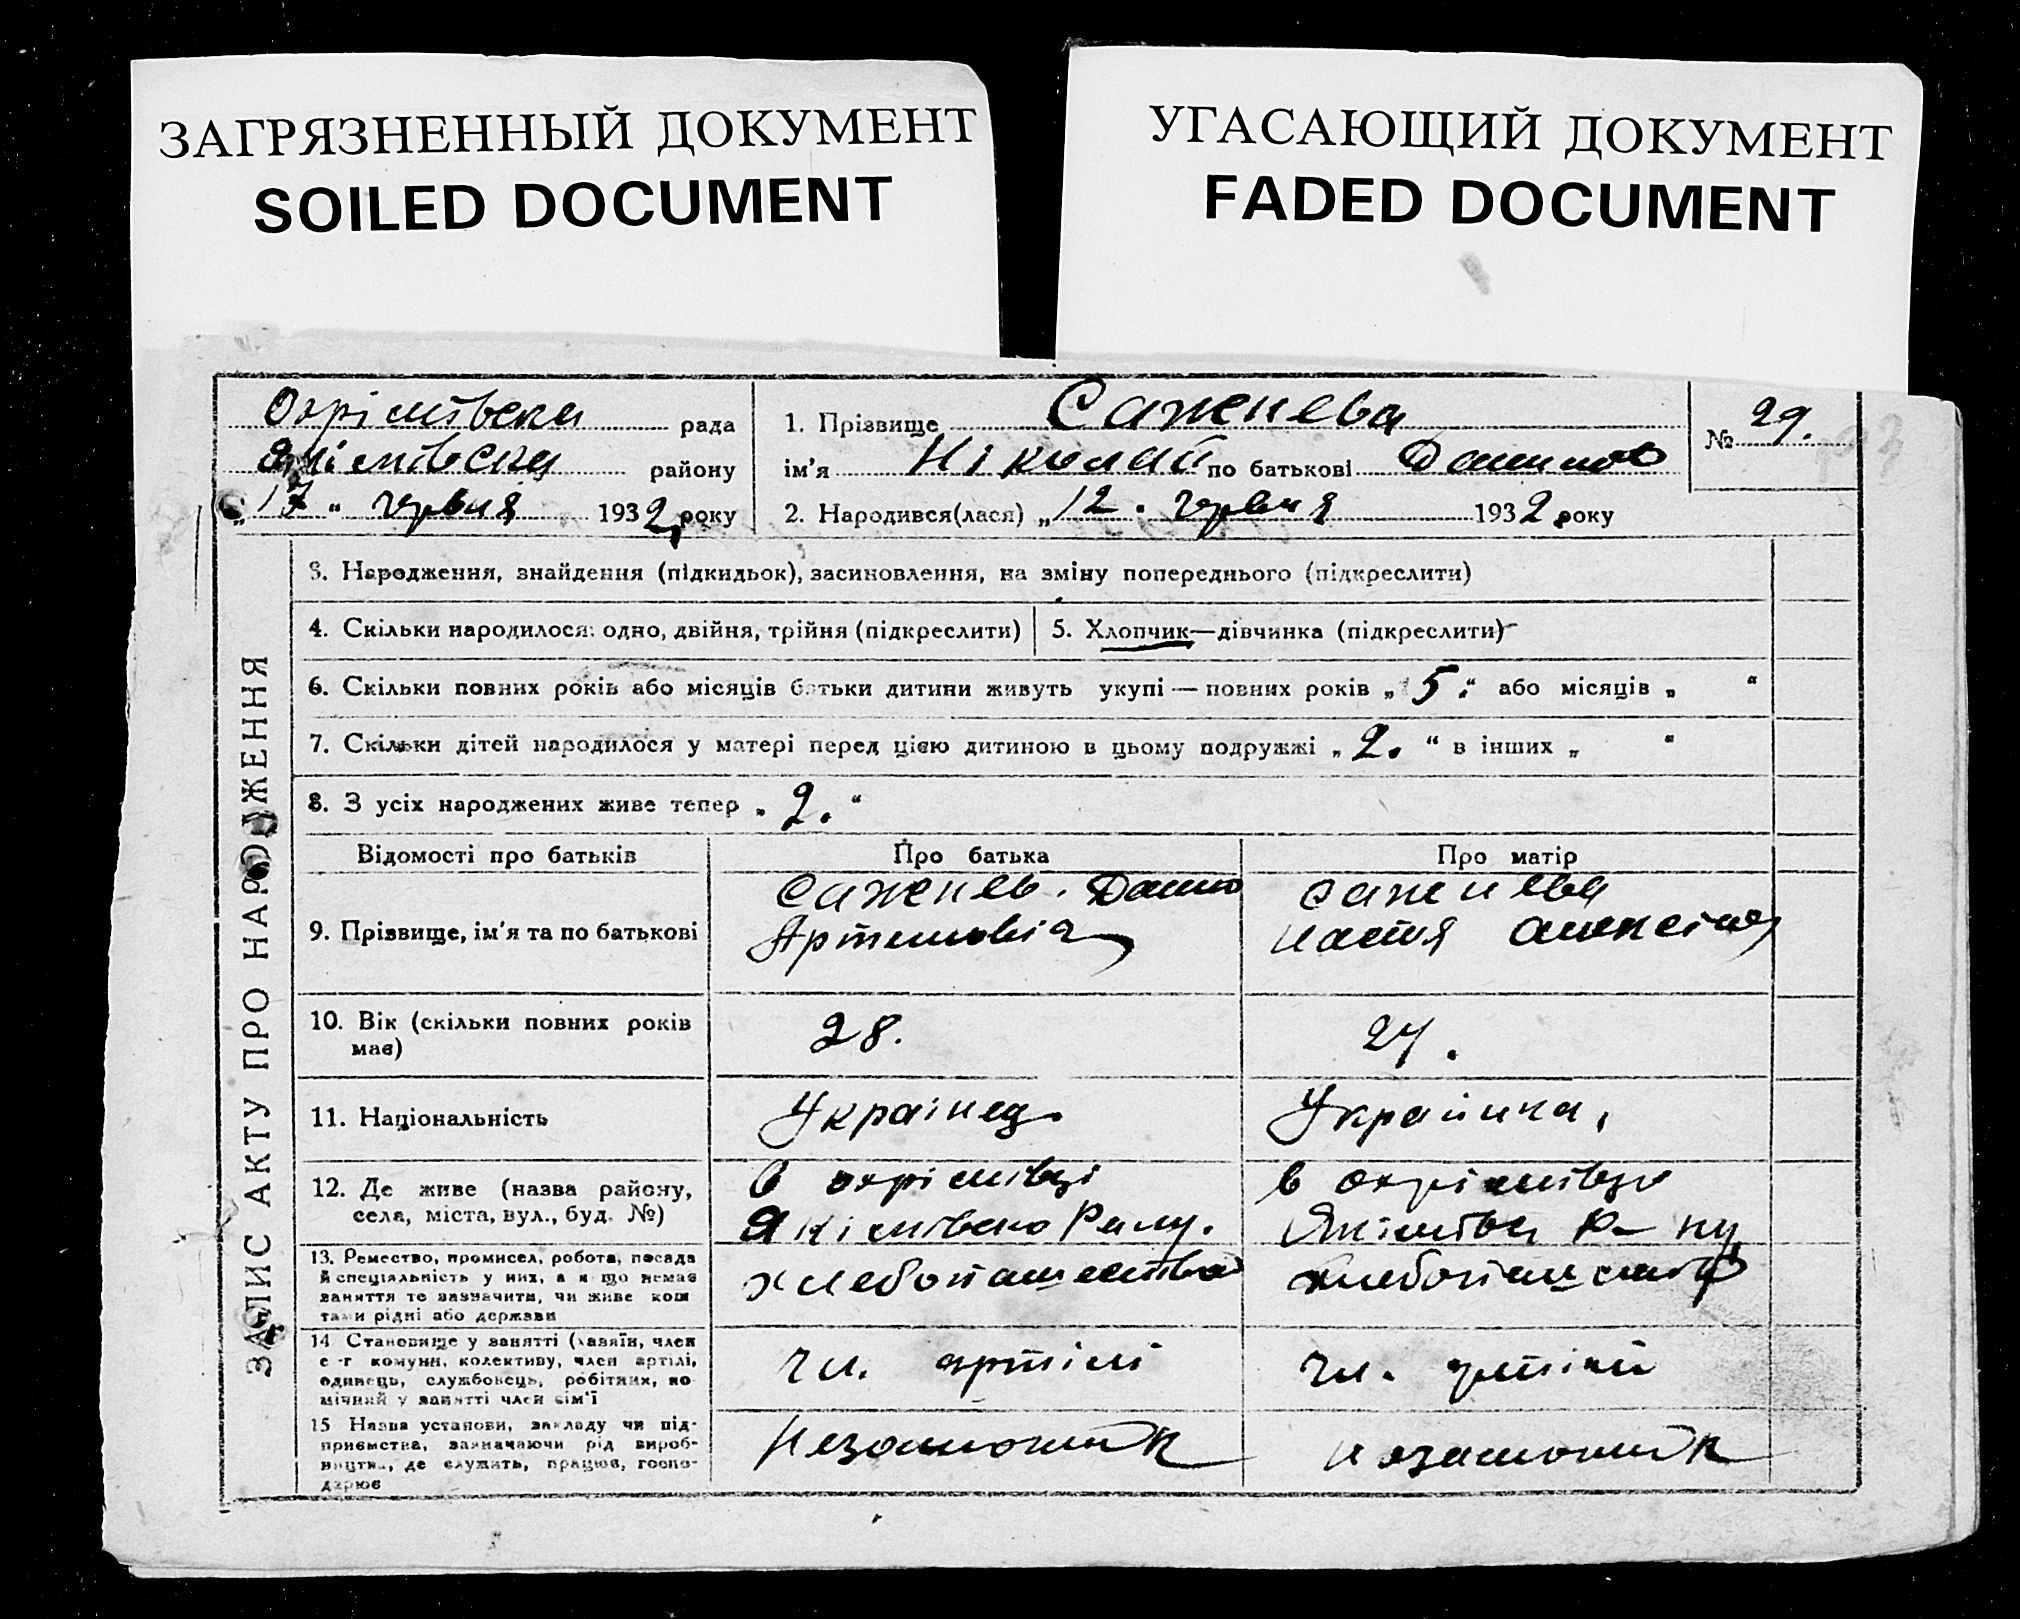 ЗАГРЯЗНЕННЫЙ ДОКУМЕНТ
SOILED DOCUMENT
УГАСАЮЩИЙ ДОКУМЕНТ
FADED DOCUMENT
Охрімівська рада
Якімівську району
„17“ червня 1932 року
1. Прізвище Саженева
ім'я Ніколай по батькові Данилов
2. Народився(лася) „12. червня 1932 року
№ 29.
ЗАПИС АКТУ ПРО НАРОДЖЕННЯ
3. Народження, знайдення (підкидьок), засиновлення, на зміну попереднього (підкреслити)
4. Скільки народилося: одно, двійня, трійня (підкреслити)
5. Хлопчик—дівчинка (підкреслити)
6. Скільки повних років або місяців батьки дитини живуть укупі — повних років „5.“ або місяців „ “
7. Скільки дітей народилося у матері перед цією дитиною в цьому подружжі „2.“ в інших „ “
8. З усіх народжених живе тепер „2.“
Відомості про батьків
Про батька
Про матір
9. Прізвище, ім'я та по батькові
Саженев. Данило
Артемовіч
Саженева
Настя Алексієв
10. Вік (скільки повних років
має)
28.
24.
11. Національність
Українец.
Украинка.
12. Де живе (назва району,
села, міста, вул., буд. №)
В охрімівці
Якімівсько Раму.
в охрімівці
Якімівсь Р-ну
13. Ремество, промисел, робота, посада
й спеціяльність у них, а якщо немає
заняття то зазначити, чи живе кош
тами рідні або держави
хлебопашество
хлебопашество
14 Становище у занятті (хазяїн, член
с-г комуни, колективу, член артілі,
одинець, службовець, робітник, по
мічний у занятті член сім'ї
чл. артілі
чл. артілі
15 Назва установи, закладу чи під-
приємства, зазначаючи рід вироб-
ництва, де служить, працює, госпо-
дарює
Незаможник
незаможник